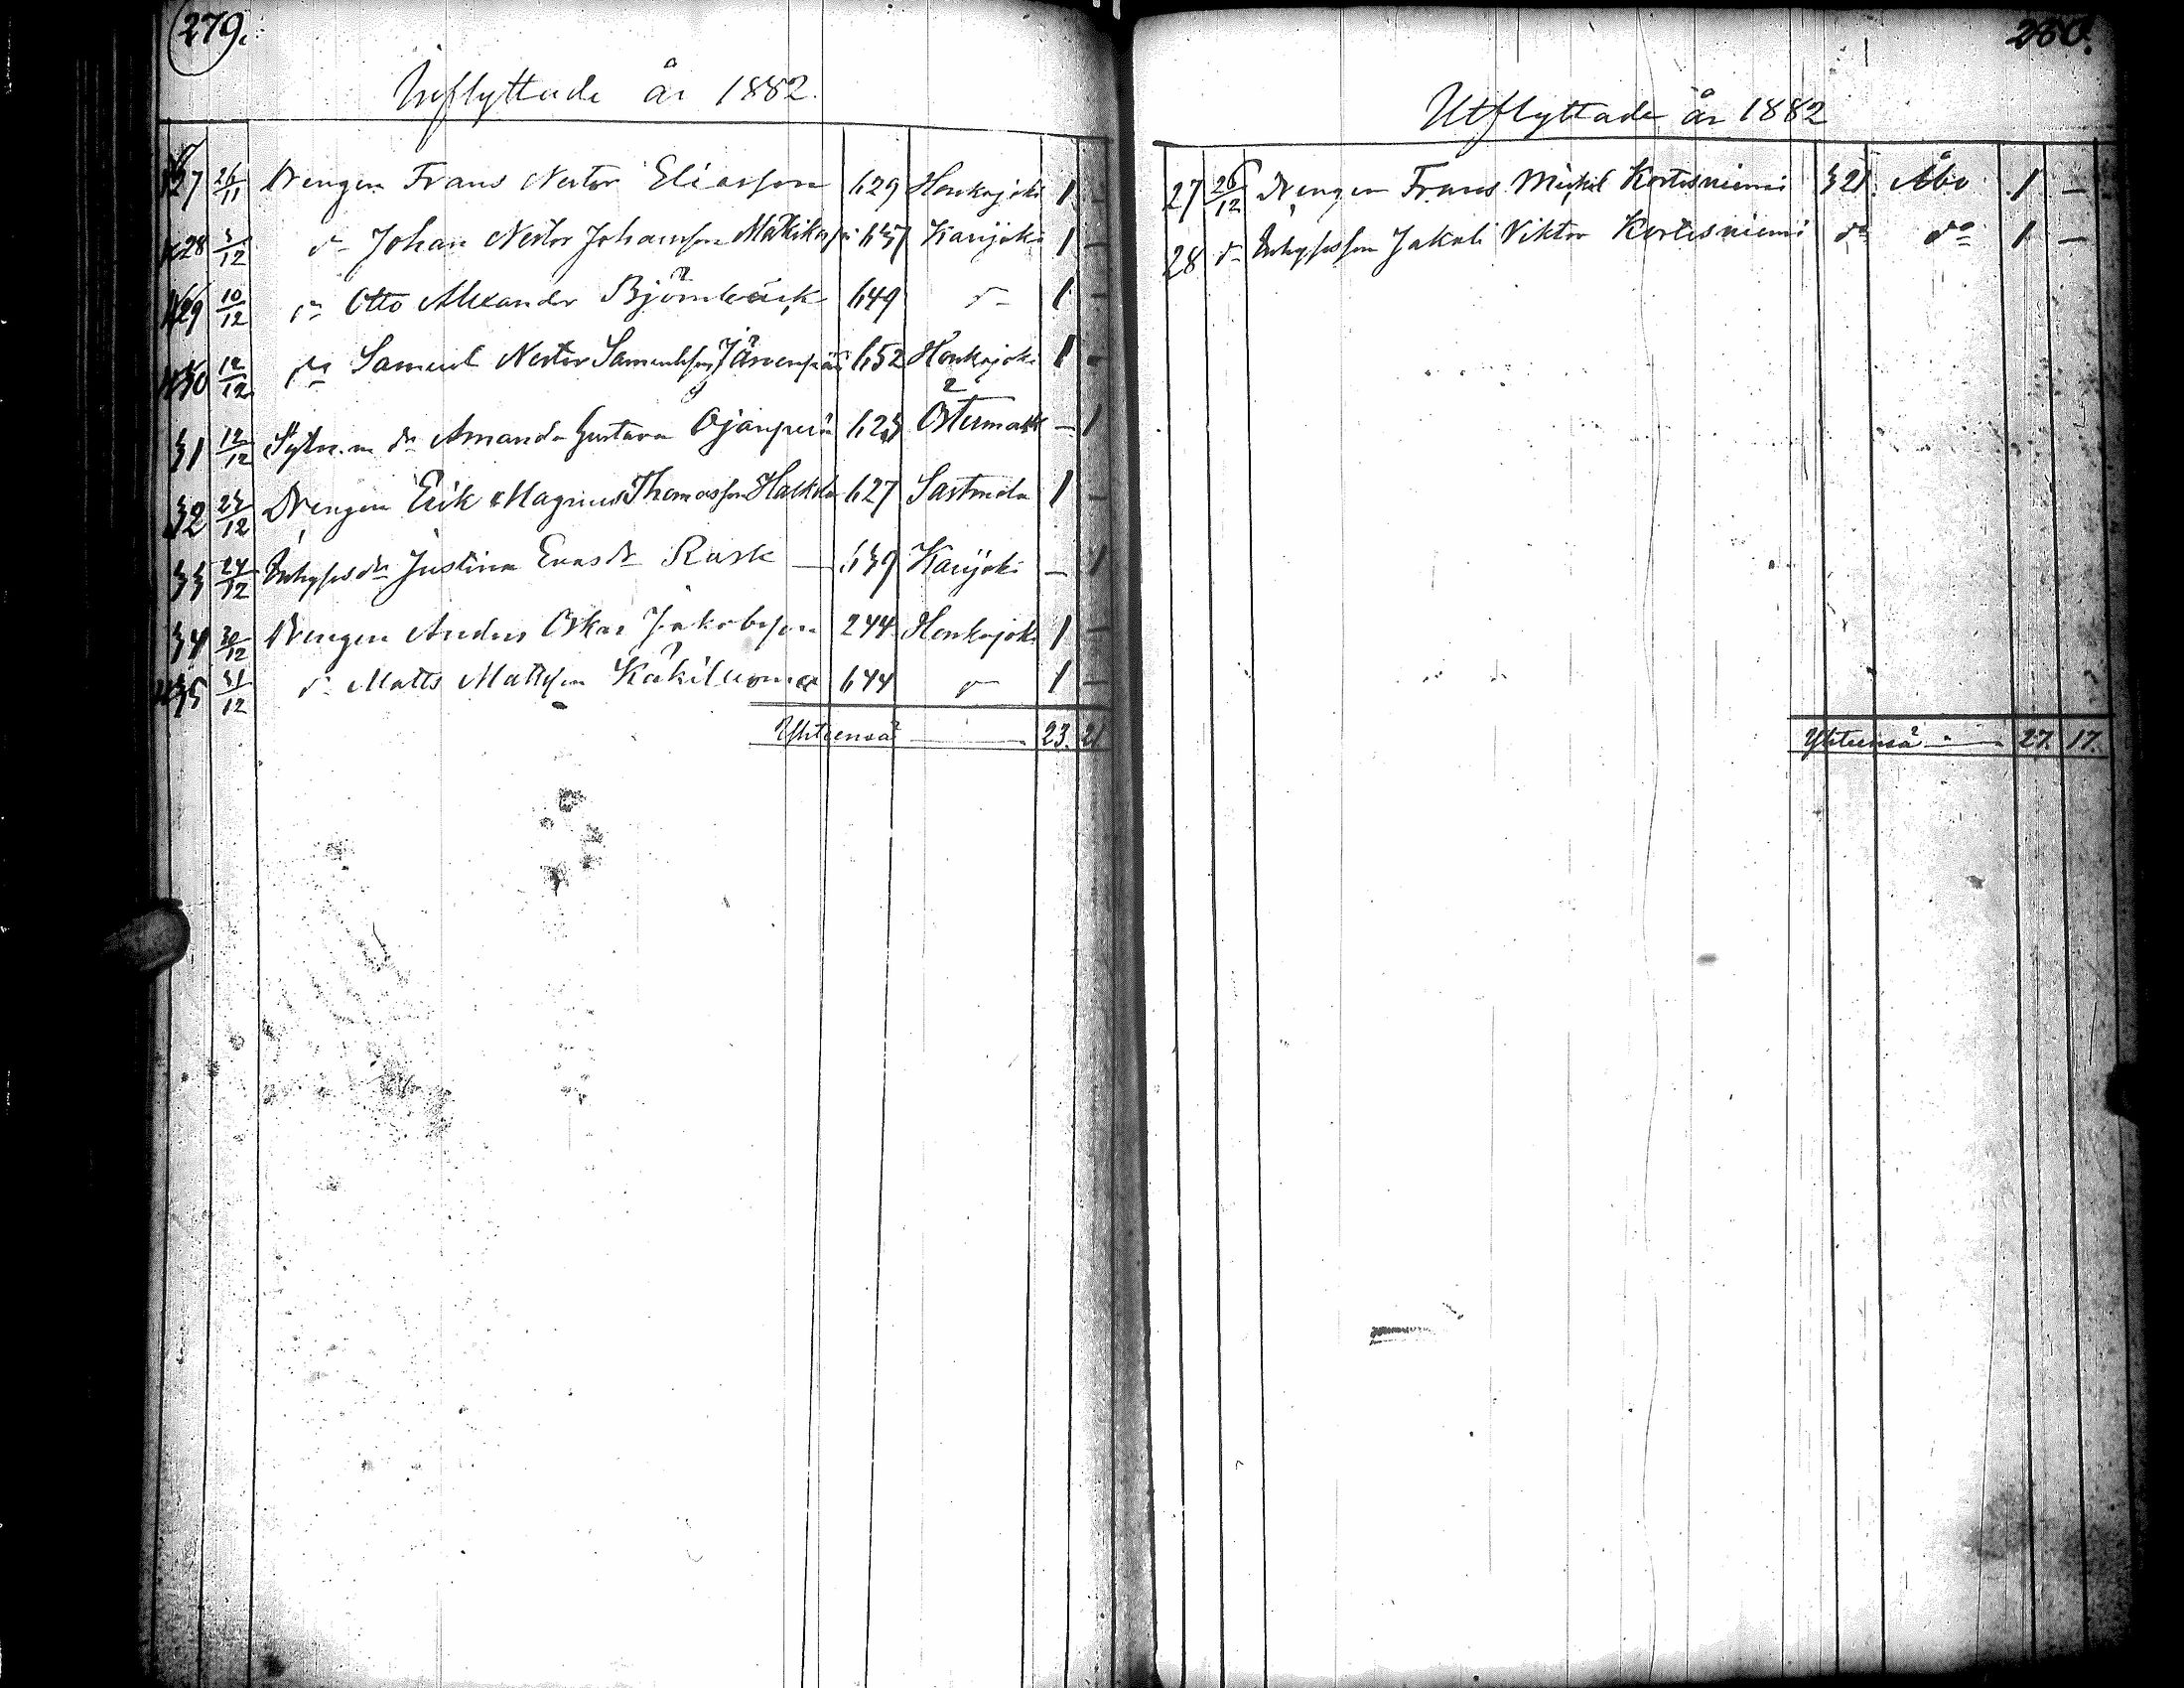 279.
Inflyttade år 1882.
27 26/11 Drengen Frans Nestor Eliasson 629 Honkojoki 1 -
28 3/12 do Johan Nestor Johansson 637 Karijoki 1 -
29 10/12 do Otto Alexander Björnbäck 649 do 1 -
30 12/12 do Samuel Nestor Samuelsson Järvenpää 652 Honkojoki 1 -
31 12/12 dr Amanda Gustava Ojanperä 623 Östermark - 1
32 23/12 Drengen Erik Magnus Thomasson Hakkola 627 Sastmola 1 -
33 24/12 Inhyses dr Justina Evasdr Rask - 639 Karijoki - 1
34 30/12 Drengen Anders Oskar Jakobsson 244 Honkojoki 1 -
35 31/12 do Matts Mattsson Käkiluoma 644 do 1 -
Yhteensä - 23. 21
280.
Utflyttade år 1882
27 26/12 Drengen Frans Mickel Kortesniemi 321. Åbo 1 -
28 do Inhysesson Jakob Viktor Kortesniemi do do 1 -
Yhteensä - 27. 17.